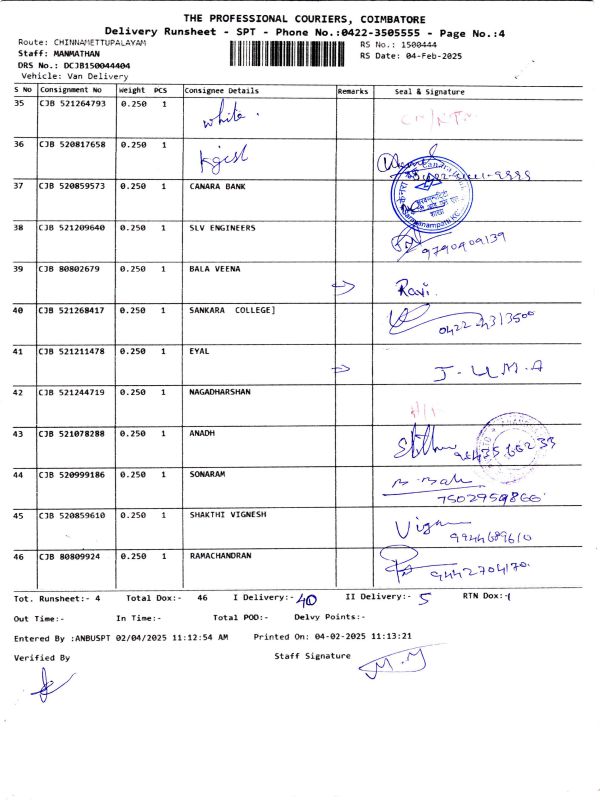 THE PROFESSIONAL COURIERS, COIMBATORE
Delivery Runsheet - SPT - Phone No.:0422-3505555 - Page No.:4
Route: CHINNAMETTUPALAYAM RS No.: 1500444
Staff: MANMATHAN RS Date: 04-Feb-2025
DRS No.: DCJB150044404
Vehicle: Van Delivery
S No Consignment No Weight PCS Consignee Details Remarks Seal & Signature
35 CJB 521264793 0.250 1 white.
36 CJB 520817658 0.250 1 kgisl
37 CJB 520859573 0.250 1 CANARA BANK
38 CJB 521209640 0.250 1 SLV ENGINEERS 9790909139
39 CJB 80802679 0.250 1 BALA VEENA Ravi.
40 CJB 521268417 0.250 1 SANKARA COLLEGE]
41 CJB 521211478 0.250 1 EYAL J-UMA
42 CJB 521244719 0.250 1 NAGADHARSHAN
43 CJB 521078288 0.250 1 ANADH
44 CJB 520999186 0.250 1 SONARAM 7502959866
45 CJB 520859610 0.250 1 SHAKTHI VIGNESH 9944689610
46 CJB 80809924 0.250 1 RAMACHANDRAN 9442704170.
Tot. Runsheet:- 4 Total Dox:- 46 I Delivery:- 40 II Delivery:- 5 RTN Dox:-1
Out Time:- In Time:- Total POD:- Delvy Points:-
Entered By :ANBUSPT 02/04/2025 11:12:54 AM Printed On: 04-02-2025 11:13:21
Verified By Staff Signature